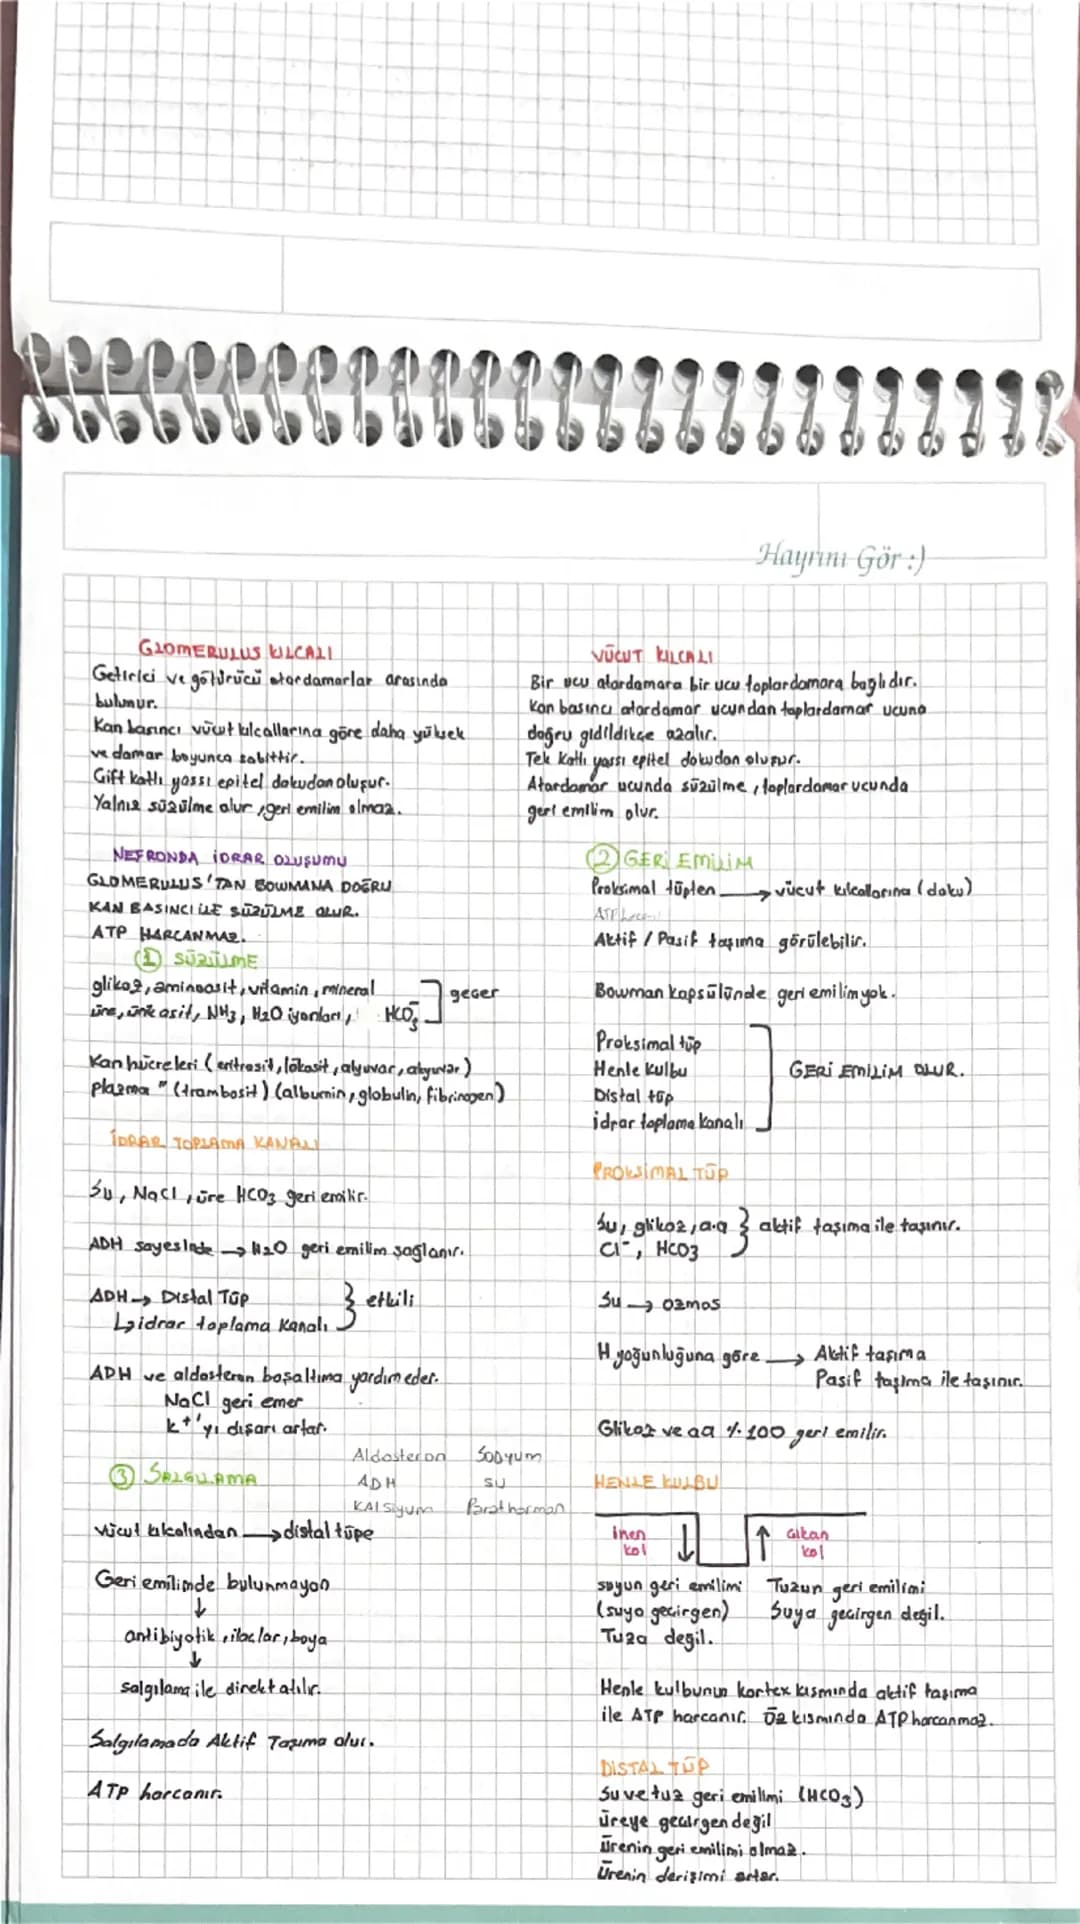 Hayrını Gör :)
GLOMERULUS KILCALI
Getirici ve götürücü atardamarlar arasında
bulunur.
Kan basıncı vücut kılcallarına göre daha yüksek
ve damar boyunca sabittir.
Çift katlı yassı epitel dokudan oluşur.
Yalnız süzülme olur, geri emilim olmaz.
NEFRONDA İDRAR OLUŞUMU
GLOMERULUS'TAN BOWMANA DOĞRU
KAN BASINCI İLE SÜZÜLME OLUR.
ATP HARCANMAZ.
① SÜZÜLME
glikoz, aminoasit, vitamin, mineral
üre, ürik asit, NH3, H2O iyonları, HCO3⁻ ] geçer
Kan hücreleri (eritrosit, lökosit, alyuvar, akyuvar)
plazma " (trombosit) (albumin, globulin, fibrinojen)
İDRAR TOPLAMA KANALI
Su, NaCl, üre HCO3 geri emilir.
ADH sayesinde → H2O geri emilim sağlanır.
ADH → Distal Tüp
↳ idrar toplama kanalı } etkili
ADH ve aldosteron boşaltıma yardım eder.
NaCl geri emer
k+'yı dışarı artar.
Aldosteron Sodyum
ADH su
KAlsiyum Parathormon
③ SALGILAMA
vücut kılcalından → distal tüpe
Geri emilimde bulunmayan
↓
antibiyotik, ilaçlar, boya
↓
salgılama ile direkt atılır.
Salgılamada Aktif Taşıma olur.
ATP harcanır.
VÜCUT KILCALI
Bir ucu atardamara bir ucu toplardamara bağlıdır.
Kan basıncı atardamar ucundan toplardamar ucuna
doğru gidildikçe azalır.
Tek Katlı yassı epitel dokudan oluşur.
Atardamar ucunda süzülme, toplardamar ucunda
geri emilim olur.
② GERİ EMİLİM
Proksimal tüpten → vücut kılcallarına (doku)
Aktif / Pasif taşıma görülebilir.
Bowman kapsülünde geri emilim yok.
Proksimal tüp
Henle kulbu
Distal tüp
idrar toplama kanalı ] GERİ EMİLİM OLUR.
PROKSİMAL TÜP
Su, glikoz, a.a
Cl⁻, HCO3 } aktif taşıma ile taşınır.
Su → ozmos
H yoğunluğuna göre → Aktif taşıma
Pasif taşıma ile taşınır.
Glikoz ve aa %100 geri emilir.
HENLE KULBU
inen kol ↓ ↑ çıkan kol
suyun geri emilimi Tuzun geri emilimi
(suya geçirgen) Suya geçirgen değil.
Tuza değil.
Henle kulbunun kortex kısmında aktif taşıma
ile ATP harcanır. Öz kısmında ATP harcanmaz.
DİSTAL TÜP
Su ve tuz geri emilimi (HCO3)
üreye geçirgen değil
Ürenin geri emilimi olmaz.
Ürenin derişimi artar.